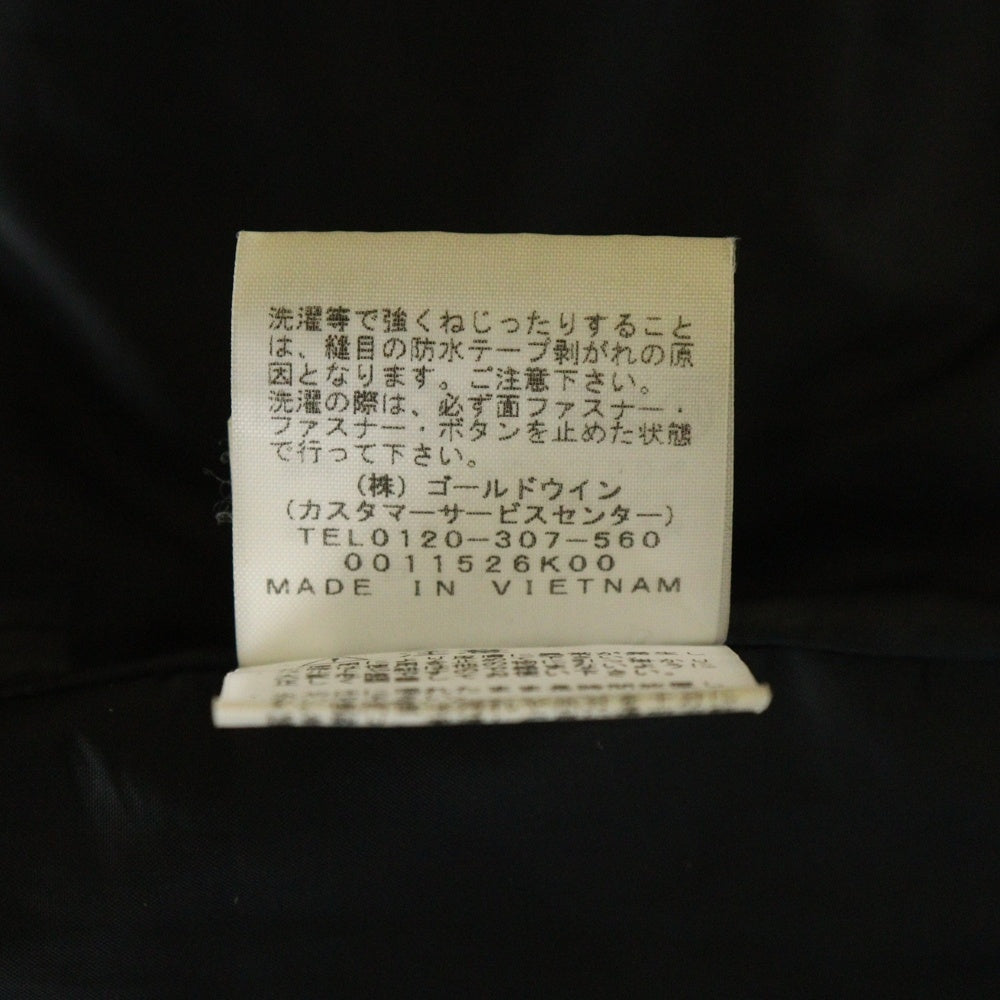 洗濯等で強くねじったりすること
は、縫目の防水テープ剥がれの原
因となります。ご注意下さい。
洗濯の際は、必ず面ファスナー・
ファスナー・ボタンを止めた状態
で行って下さい。
(株)ゴールドウイン
(カスタマーサービスセンター)
TEL0120-307-560
0011526K00
MADE IN VIETNAM